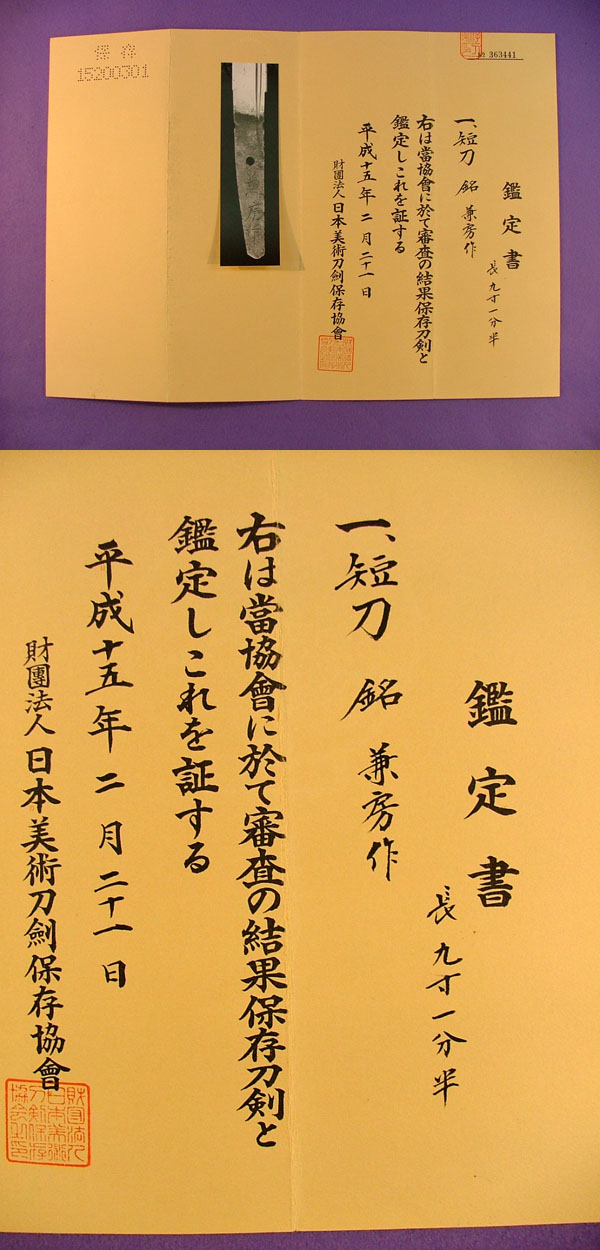 № 363441
鑑定書
長九寸一分半
一、短刀 銘 兼房作
右は當協會に於て審査の結果保存刀剣と
鑑定しこれを証する
平成十五年二月二十一日
財團法人日本美術刀劍保存協會
兼房作
保存
15200301
鑑定書
長九寸一分半
一、短刀 銘 兼房作
右は當協會に於て審査の結果保存刀剣と
鑑定しこれを証する
平成十五年二月二十一日
財團法人日本美術刀劍保存協會
財団法人
日本美術
刀剣保存
協会之印